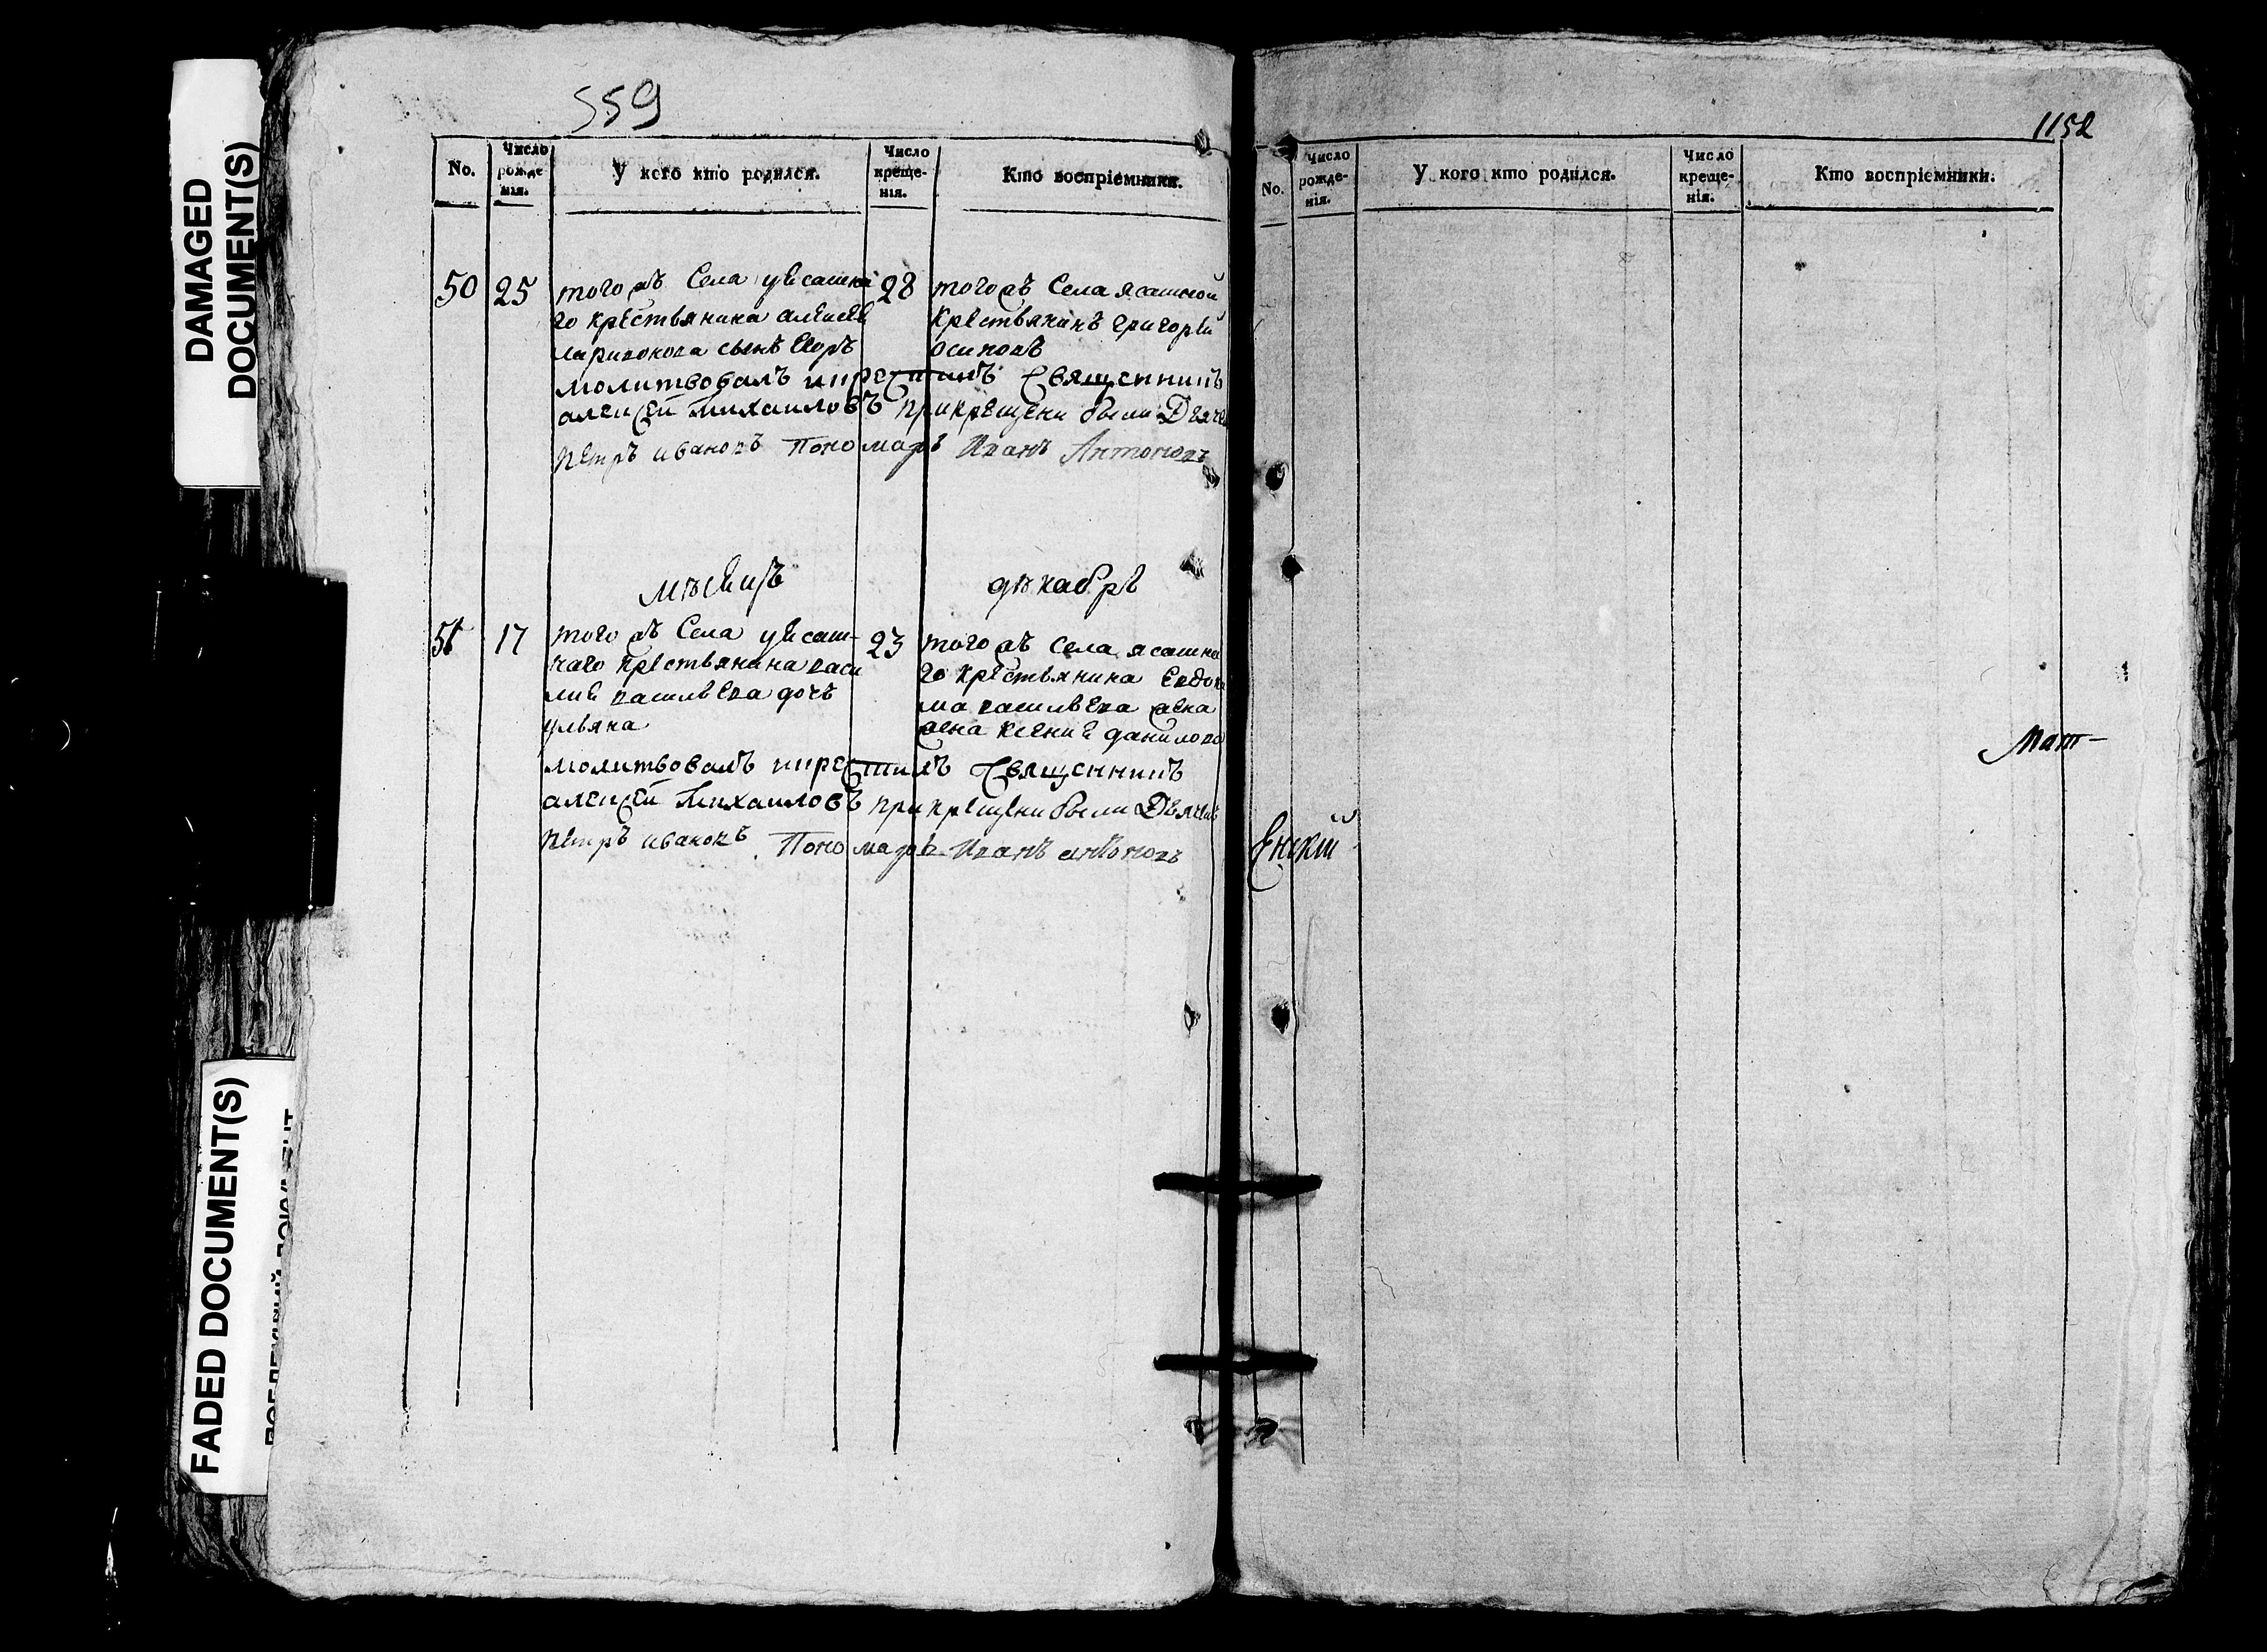 DAMAGED
DOCUMENT(S)
FADED DOCUMENT(S)
559
No.
Число рожденія.
У кого кто родился.
Число крещенія.
Кто воспріемники.
50
25
того жъ Села у ясашна
го крестьянина алексея
ларионова сынъ Егоръ
28
того жъ Села ясашной
крестьянинъ григорей
осиповъ
молитвовалъ икрестилъ Священникъ
алексей михаиловъ прикрещени были Дьячекъ
петръ ивановъ Пономарь Иванъ Антоновъ
месяцъ декабрь
51
17
того жъ Села у ясаш-
наго крестьянина васи
лия васильева дочь
ульяна
23
того жъ села ясашна
го крестьянина Евдоки
ма васильева жена
жена ксения данилова
молитвовалъ икрестилъ Священникъ
алексей михаиловъ прикрещени были Дьячекъ
петръ ивановъ Пономарь Иванъ антоновъ
1152
No.
Число рожденія.
У кого кто родился.
Число крещенія.
Кто воспріемники.
Мат-
енскій